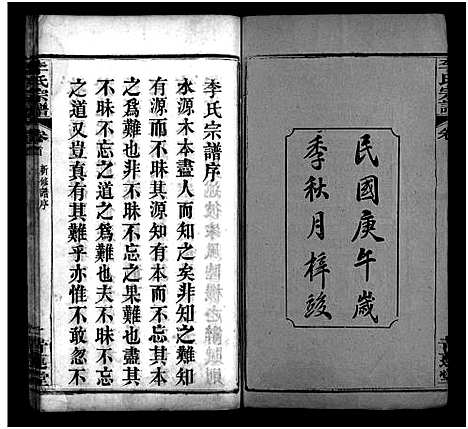 民國庚午歲
季秋月梓竣
李氏宗譜序
水源木本盡人而知之矣非知之難知
有源而不昧其源知有本而不忘其本
之為難也非不昧不忘之果為難也盡其
不昧不忘之道之為難也夫不昧不忘
之道又豈真有其難乎亦惟不敢忽不
李氏宗譜
卷首
新修譜序